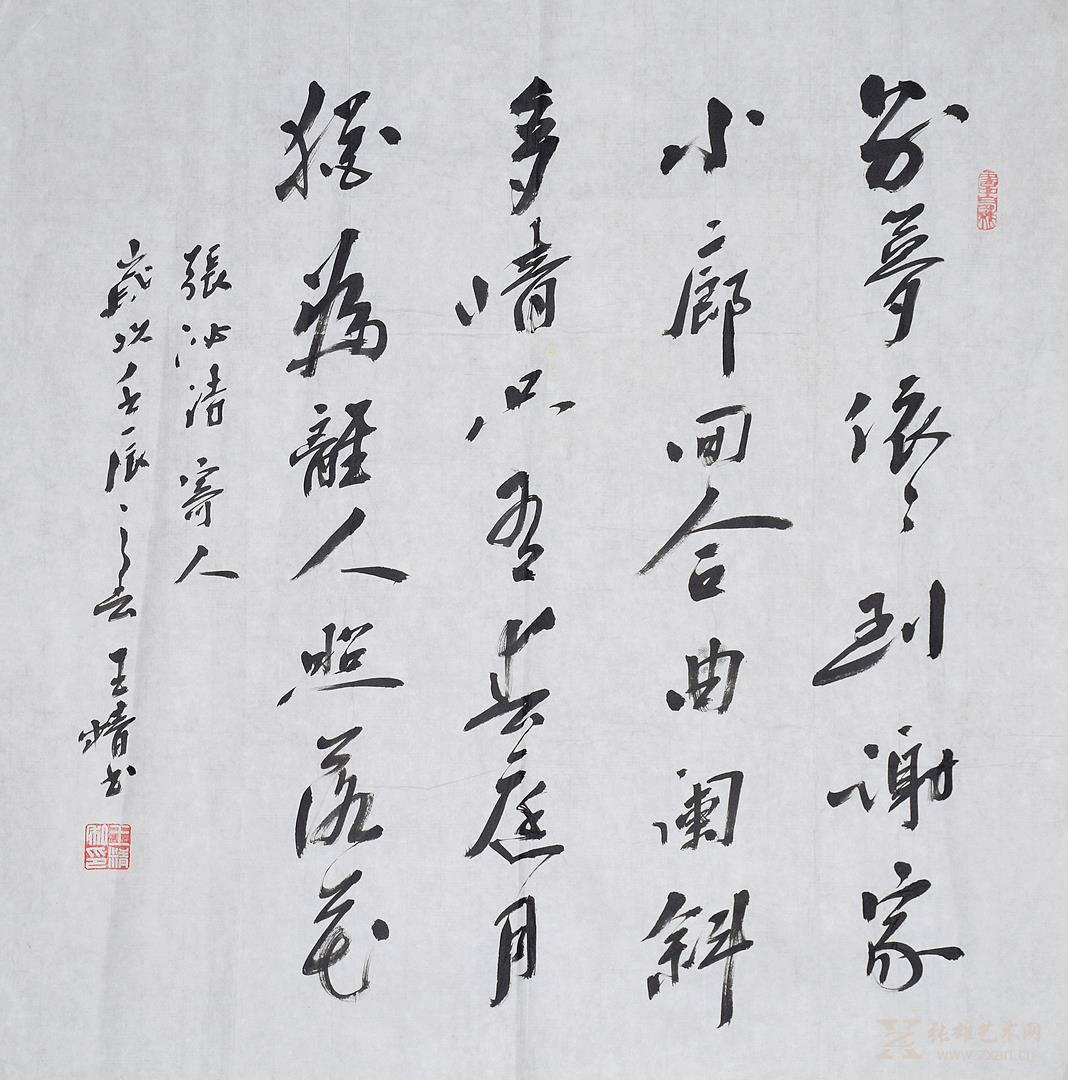 别夢依〻到谢家
小廊回合曲阑斜
多情只有春庭月
猶為離人照落花
張泌诗寄人
歲次壬辰之 王 书
张雄艺术网
www.zxart.cn